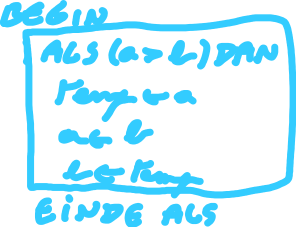 BEGIN
ALS (a > b) DAN
Temp ← a
a ← b
b ← Temp
EINDE ALS